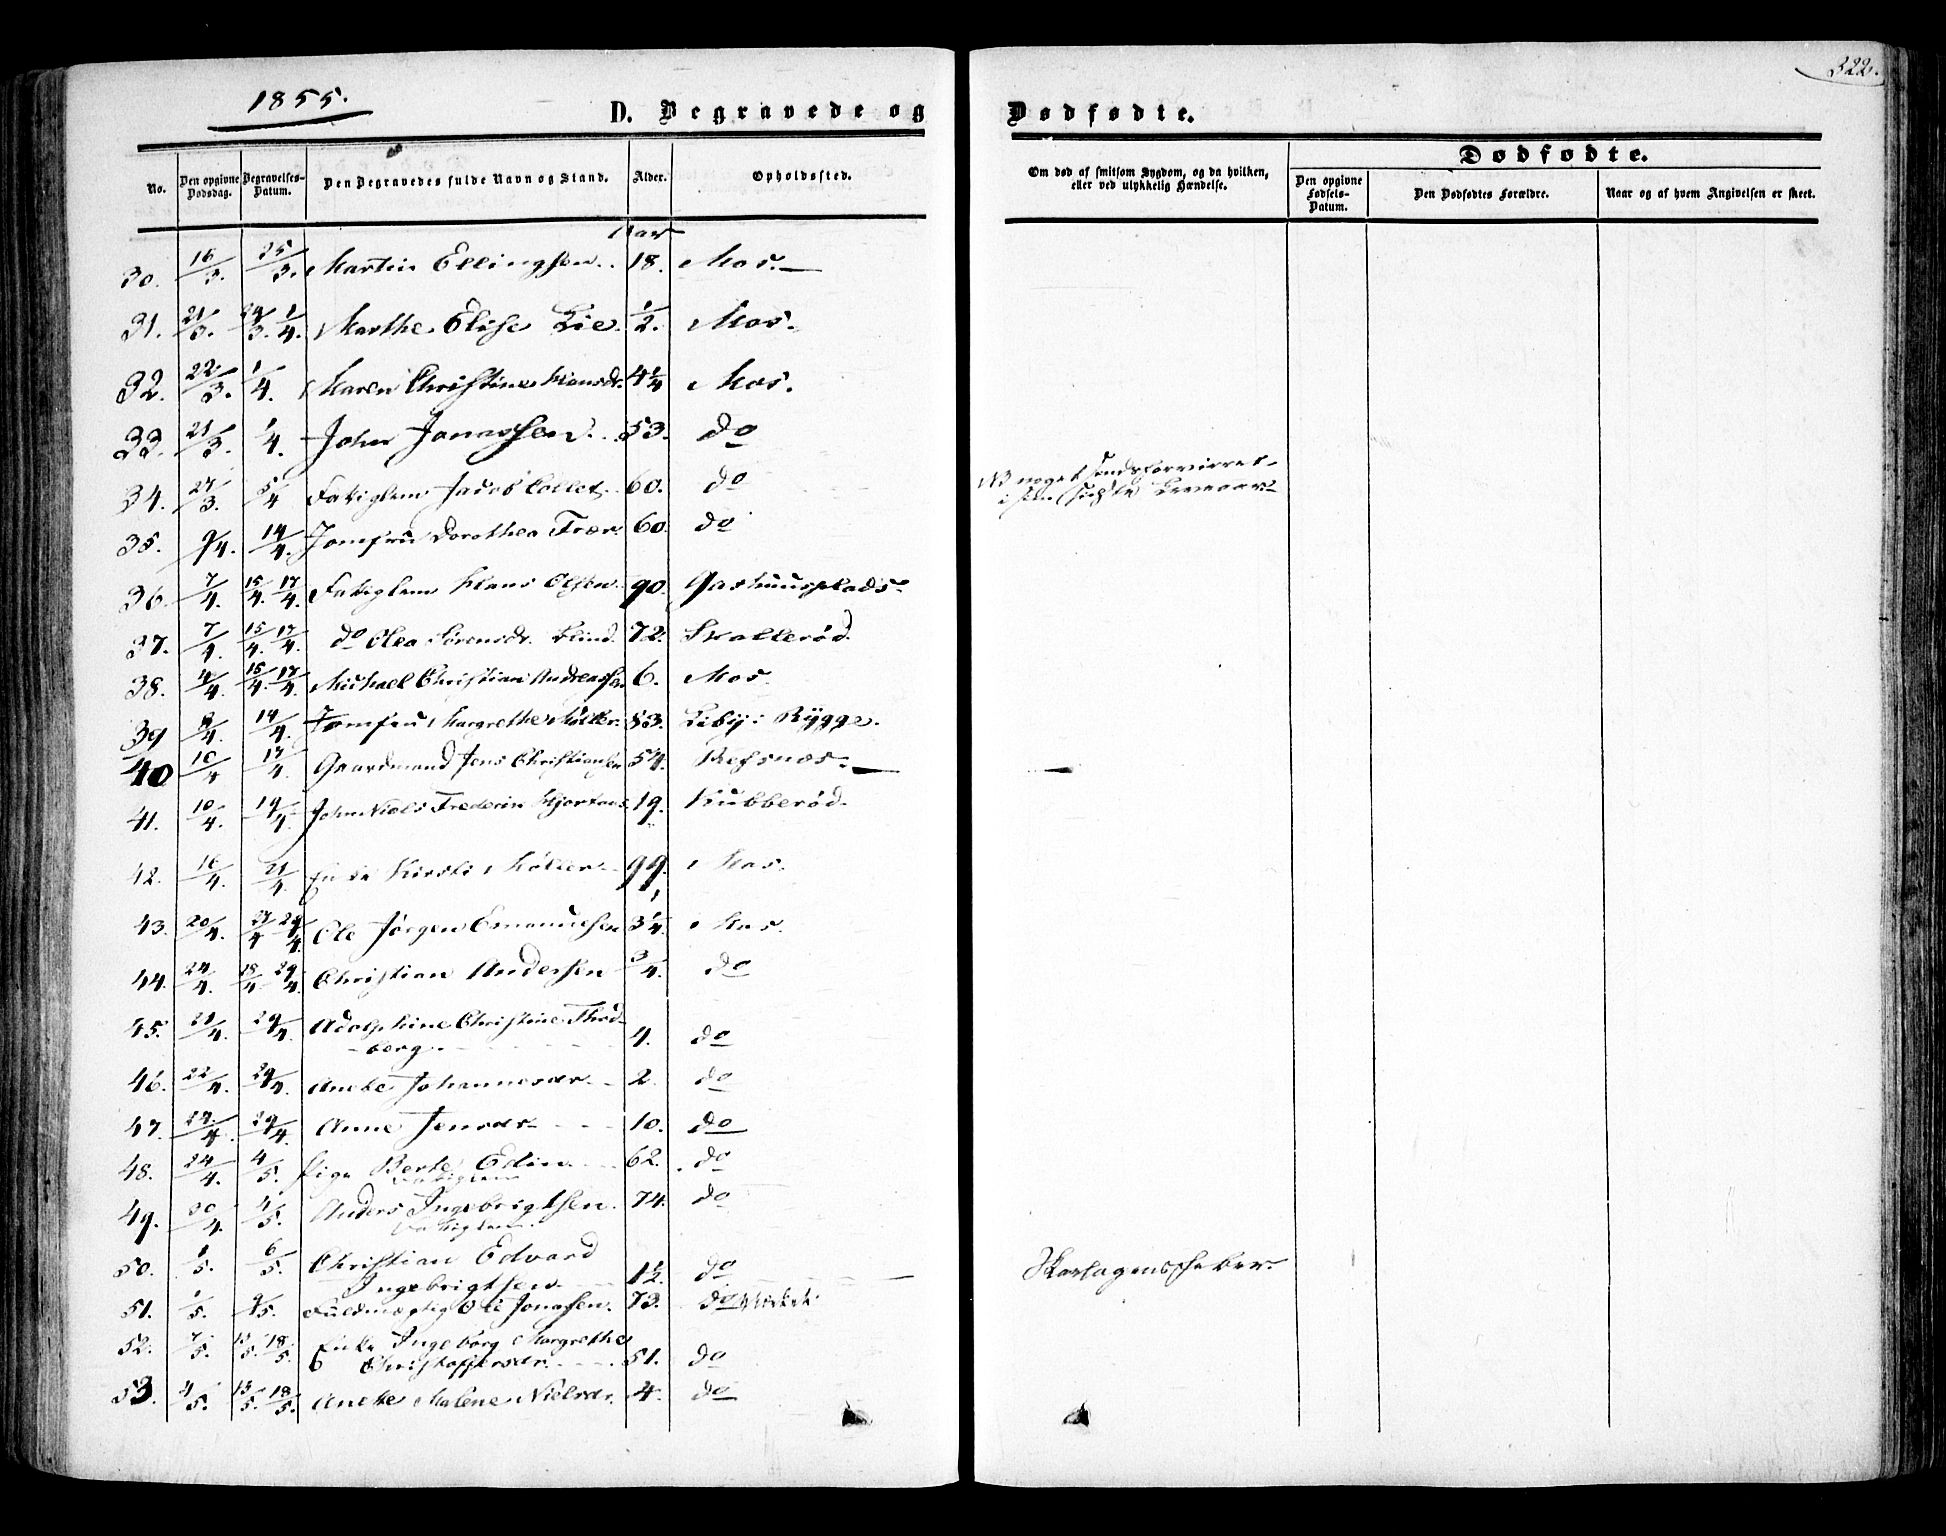 1855.
322.
D. Begravede og Dødfødte.
No.
Den opgivne Dødsdag.
Begravelses-Datum.
Den Begravedes fulde Navn og Stand.
Alder.
Opholdssted.
Om død af smitsom Sygdom, og da hvilken, eller ved ulykkelig Hændelse.
Dødfødte.
Den opgivne Fødsels-Datum.
Den Dødfødtes Forældre.
Naar og af hvem Angivelsen er skeet.
Aar
30. 16/3. 25/3. Martin Ellingsen. 18. Mos.
31. 21/3. 29/3. 1/4. Marthe Elise Lie. 1/2. Mos.
32. 22/3. 1/4. Maren Christine Hansdr. 4 1/4 Mos.
33. 21/3. 1/4. John Jonassen. 53. do
34. 27/3. 5/4 Fatiglem Jacob Collet. 60. do
NB noget sindsforvirret
i sin Leveaar
35. 9/4. 14/4. Jomfru Dorothea 60. do
36. 7/4. 15/4. 17/4. Fatiglem Hans Olsen. 90. Gashuusplads
37. 7/4. 15/4. 17/4. do Olea Sørensdr. Blind. 72. Skallerød.
38. 4/4. 15/4. 17/4. Michael Christian Andreassen 6. Mos.
39 8/4. 14/4. Jomfru Margrethe Møller. 83. Liby i Rygge.
40 10/4 17/4. Gaardmand Jens Christiansen 54. Refsnæs.
41. 10/4. 19/4. John Niels Frederik 19. Kubberød.
42. 16/4. 21/4. Enke Kirsti Møller 99. Mos.
43. 20/4. 27/4 29/4. Ole Jørgen Emanuelsen 3 1/4. Mos.
44. 24/4. 28/4 29/4. Christian Andersen 3/4. do
45. 21/4. 29/4. Adolphine Christine Thod-
berg. 4. do
46. 22/4. 29/4. Anette Johannesdr. 2. do
47. 24/4. 29/4. Anne Jensdr. 10. do
48. 24/4. 4/5. Pige Berte Edin. 62. do
Fatiglem
49. 30/4. 4/5. Anders Ingebrigtsen. 74. do
Fatiglem.
50. 1/5. 6/5. Christian Edvard
Ingebrigtsen 1 1/2. do Skarlagensfeber.
51. 1/5. 9/5. Fuldmægtig Ole Jonassen. 73. do
52. 7/5. 13/5. 18/5. Enke Ingeborg Margrethe
Christophersdr. 51. do
53. 4/5. 13/5. 18/5. Anette Malene Nielsdr. 4. do